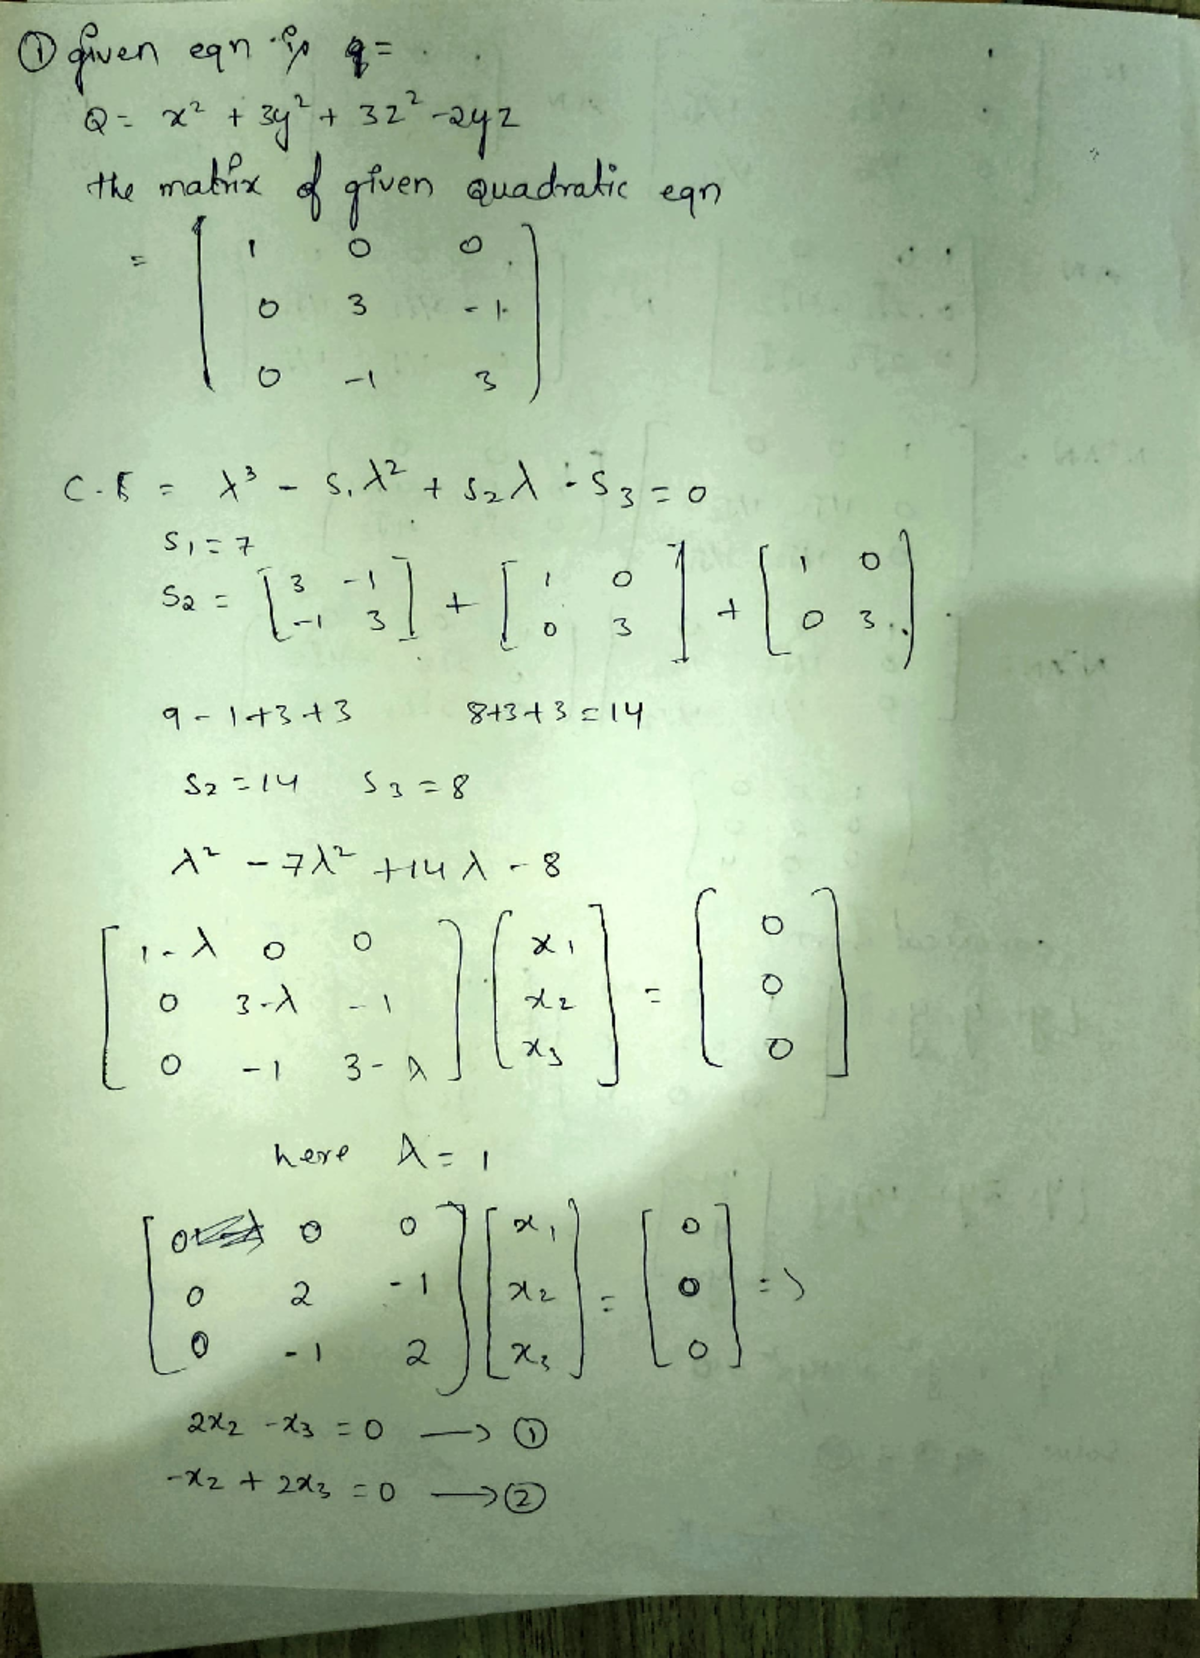 ① given eqn is q=
Q= x² + 3y² + 3z² -2yz
the matrix of given quadratic eqn
= [ 1 0 0
0 3 -1
0 -1 3 ]
C.E = λ³ - S₁λ² + S₂λ - S₃ = 0
S₁ = 7
S₂ = [ 3 -1 ] + [ 1 0 ] + [ 1 0 ]
[ -1 3 ] [ 0 3 ] [ 0 3 ]
9 - 1+3+3 8+3+3 = 14
S₂ = 14 S₃ = 8
λ² - 7λ² +14λ - 8
[ 1-λ 0 0 ] [ x₁ ] = [ 0 ]
[ 0 3-λ -1 ] [ x₂ ] [ 0 ]
[ 0 -1 3-λ ] [ x₃ ] [ 0 ]
here λ = 1
[ 0 0 0 ] [ x₁ ] = [ 0 ] =>
[ 0 2 -1 ] [ x₂ ] [ 0 ]
[ 0 -1 2 ] [ x₃ ] [ 0 ]
2x₂ - x₃ = 0 → ①
-x₂ + 2x₃ = 0 → ②